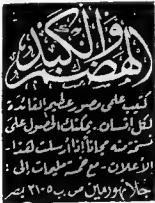 الهضم والكبد
كتيب علمى مصور عظيم الفائدة
لكل انسان . يمكنك الحصول على
نسخة منه مجاناً اذا ارسلت هذا
الاعلان - مع خمسة مليمات إلى :
ص ب ٢١٠٥ مصر